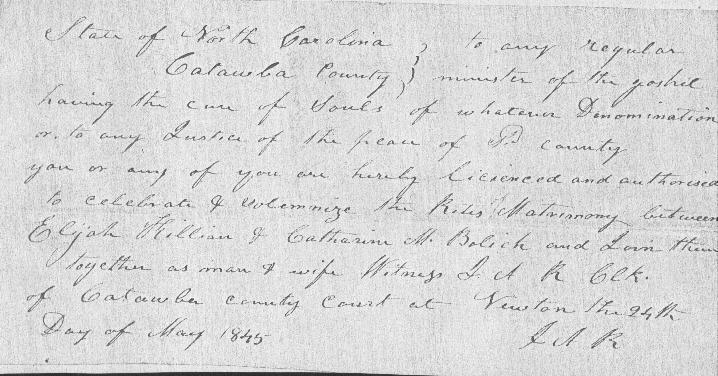 State of North Carolina } to any regular
Catawba County } minister of the goshel
having the cure of Souls of whatever Denomination
or to any Justice of the peace of Sd county
you or any of you are hereby licienced and authorised
to celebrate & solemnize the Rites Matrimony between
Elijah Killian & Catharine M. Bolick and Join them
together as man & wife Witness J. A R Clk.
of Catawba county court at Newton the 24th
Day of May 1845
J A R